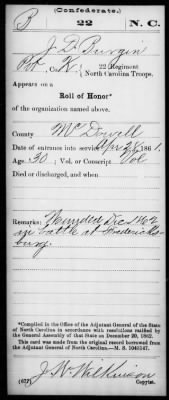 (Confederate.)
B 22 N. C.
J D Burgin
Pvt, Co. K, 22 Regiment
North Carolina Troops.
Appears on a
Roll of Honor*
of the organization named above.
County McDowell
Date of entrance into service Apr 28, 1861.
Age: 30; Vol. or Conscript Vol
Died or discharged, and when
Remarks: Wounded Dec 1862
in battle at Fredericks-
burg.
*Compiled in the Office of the Adjutant General of the State
of North Carolina in accordance with resolutions ratified by the
General Assembly of that State on December 20, 1862.
This card was made from the original record borrowed from the
Adjutant General of North Carolina—M. S. 1043147.
J. W. Wilkinson
(677) Copyist.